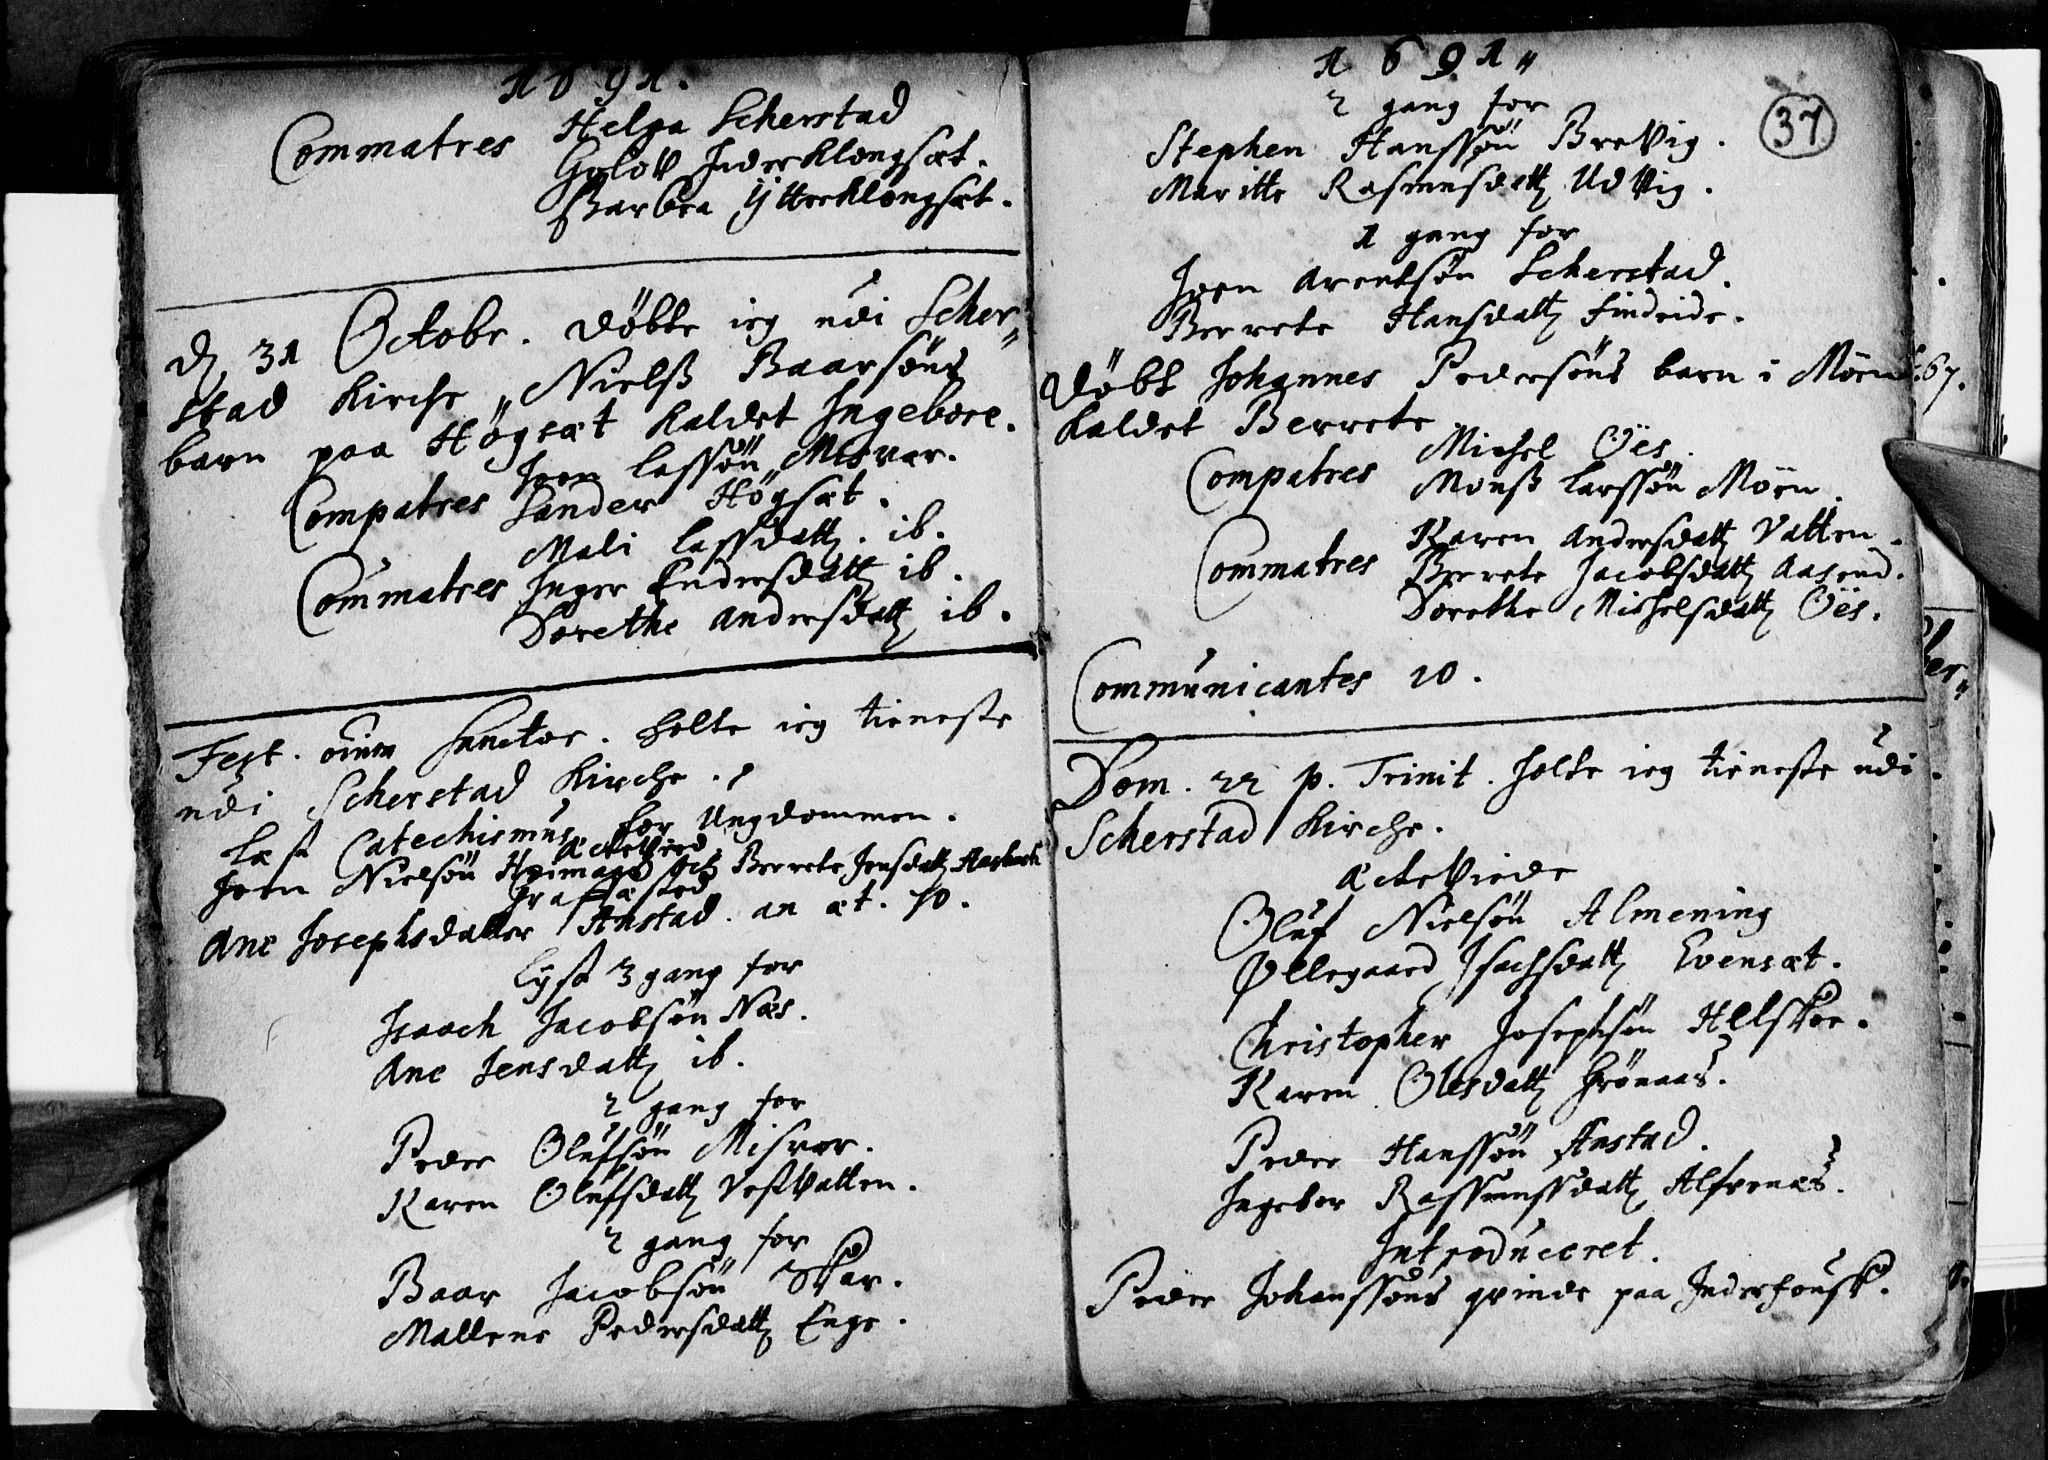 1691.
Commatres Helga Scherstad
Golov Inderklongsæt.
Barbra Ytterklongsæt.
D. 31 Octobr. döbte ieg udi Scher„
stad Kirche „ Nielß Baarsöns
barn paa Högsæt kaldet Ingeborr.
Joen Lassön Misvær.
Compatres Sander Högsæt.
Mali Lassdatt. ib.
Commatres Inger Endersdatt ib.
Dorethe Andersdatt ib.
Fest. oium Sanctor. holte ieg tieneste
udi Scherstad Kirche.
læst Catechismus for Ungdommen.
æcteVied
Joen Nielsön och Berrete Jensdatt
Ane Josephsdatter Anstad. an æt. 70.
lyst 3 gang for
Isaach Jacobsön Næs.
Ane Jensdatt ib.
2 gang for
Peder Olufsön Misvær.
Karen Olufsdatt Vestvatten.
2 gang for
Baar Jacobsön Skar.
Mallene Pedersdatt Enge.
1691„
37
2 gang for
Stephen Hanssön BreVig.
Maritte Rasmusdatt UdVig.
1 gang for
Joen Arentsön Scherstad.
Berrete Hansdatt Findeide.
Döbt Johannes Pedersöns barn i Mörn
kaldet Berrete
Michel Öes.
Compatres Monß Larssön Mörn.
Karen Andersdatt Vatten.
Commatres Berrete Jacobsdatt Aasend.
Dorethe Michelsdatt Öes.
Communicantes 10.
Dom. 22 p. Trinit. holte ieg tieneste udi
Scherstad Kirche.
ÆcteViede
Oluf Nielsön Almening
Øllegaard Isachsdatt Evensæt.
Christopher Josephsön
Karen Olesdatt Grönaas.
Peder Hanssön Anstad.
Ingebor Rassmussdatt Alfvenæs.
Introduceret.
Peder Johanssöns qvinde paa
67.